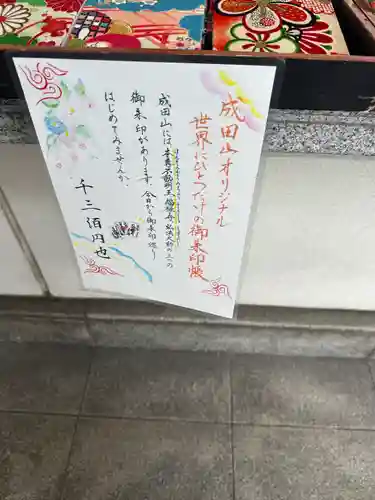 成田山オリジナル
世界にひとつだけの御朱印帳
成田山には、本尊不動明王、
御朱印があります。今日から御朱印巡り
はじめてみませんか。
千三百円也